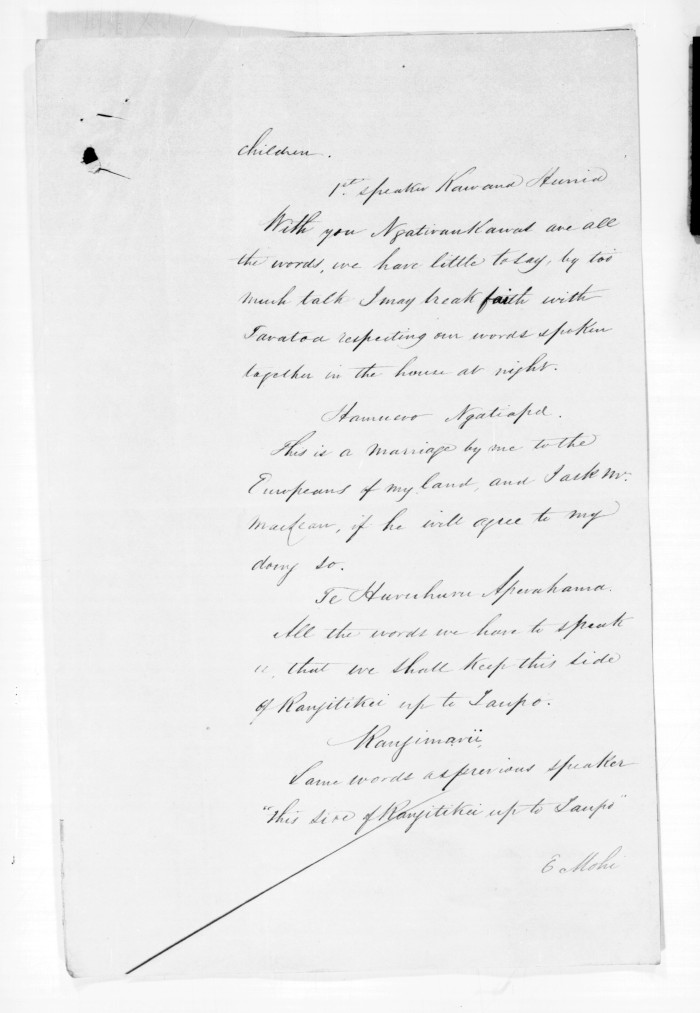 children.
1st speaker Kawana Hunia
With you Ngatiraukawas are all
the words, we have little to say, by too
much talk I may break faith with
Taratoa respecting our words spoken
together in the house at night.
Hamuera Ngatiapa.
This is a marriage by me to the
Europeans of my land, and I ask Mr.
MacLean, if he will agree to my
doing so.
Te Huruhuru Aperahama.
All the words we have to speak
is, that we shall keep this side
of Rangitikei up to Taupo.
Rangimarii,
Same words as previous speaker
"This side of Rangitikei up to Taupo"
E Mohi